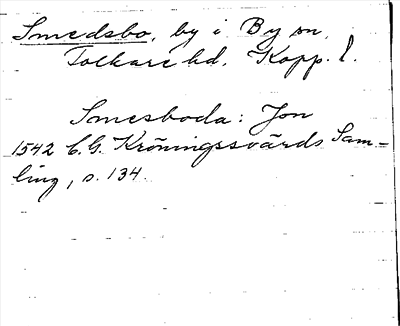 Smedsbo, by i By sn,
Folkare hd. Kopp. l.
Smesboda: Jon
1542 C.G. Kröningssvärds Sam-
ling, s. 134.